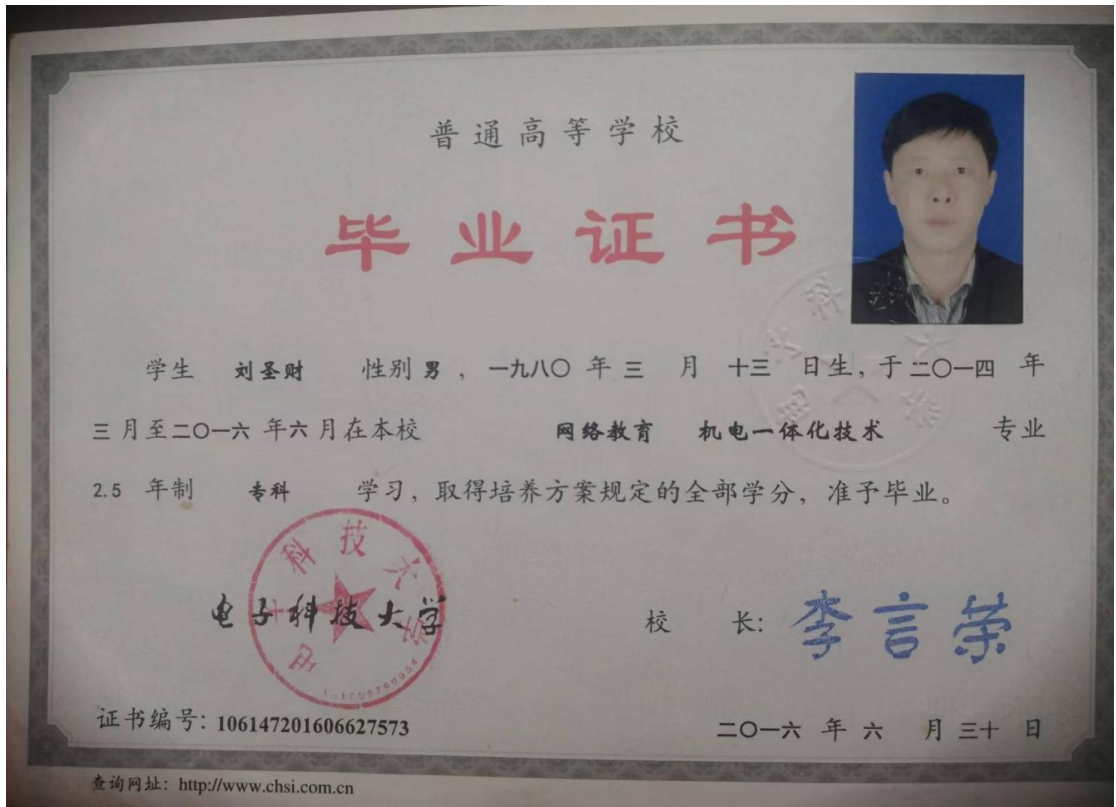 普通高等学校
毕业证书
学生 刘圣财 性别 男 , 一九八〇 年 三 月 十三 日生, 于 二〇一四 年
三 月至 二〇一六 年 六 月在本校 网络教育 机电一体化技术 专业
2.5 年制 专科 学习, 取得培养方案规定的全部学分, 准予毕业。
电子科技大学
电子科技大学
校 长: 李言荣
证书编号: 106147201606627573
二〇一六 年 六 月 三十 日
查询网址: http://www.chsi.com.cn